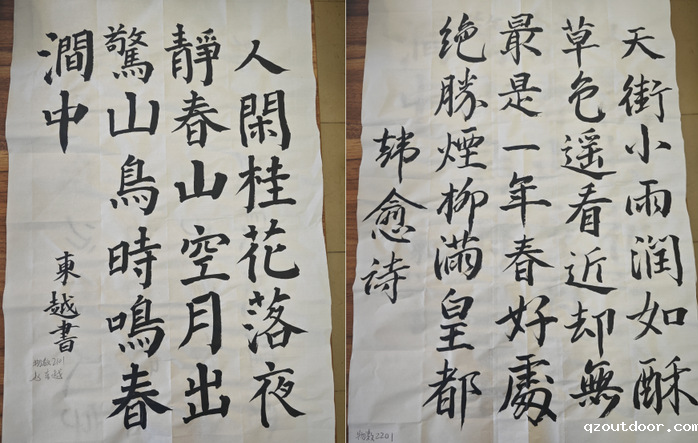 人閑桂花落夜
靜春山空月出
驚山鳥時鳴春
澗中
東越書
物教2201
天街小雨润如酥
草色遥看近却無
最是一年春好處
绝勝煙柳滿皇都
韩愈诗
物教2201
qzoutdoor.com